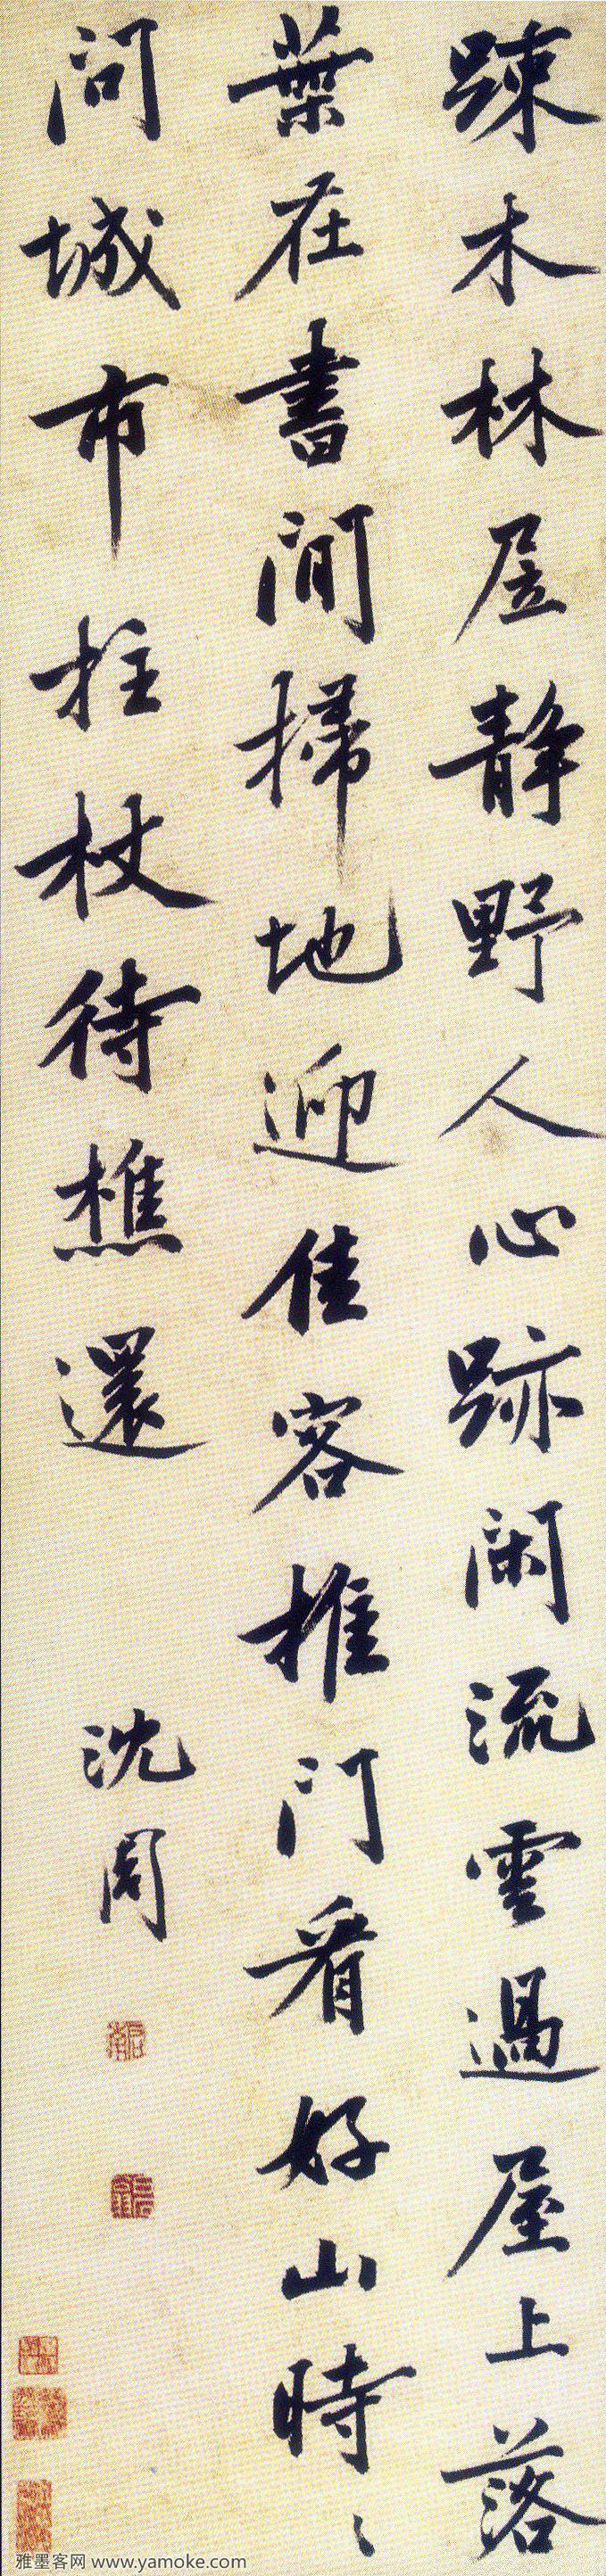 踈木林居静野人心跡閑流雲過屋上落
葉在書間掃地迎佳客推門看好山時〻
問城市拄杖待樵還
沈周
雅墨客网 www.yamoke.com